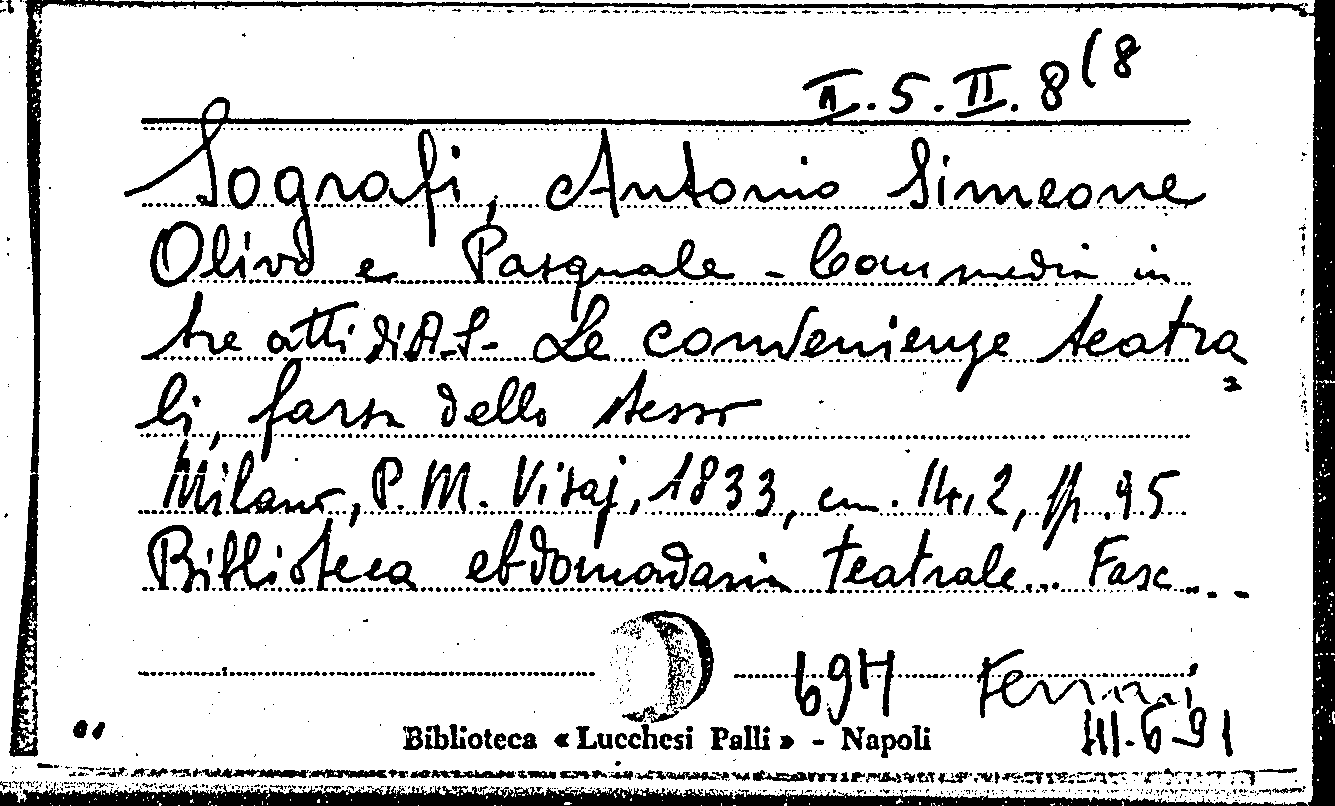 II.5.II.8(8
Sografi, Antonio Simeone
Olivo e Pasquale - Commedia in
tre atti di A.S. - Le convenienze teatra
li, farsa dello stesso
Milano, P.M. Visaj, 1833, cm. 14,2, pp. 95
Biblioteca ebdomadaria teatrale... Fasc...
694 Ferrari
III.6.91
Biblioteca « Lucchesi Palli » - Napoli